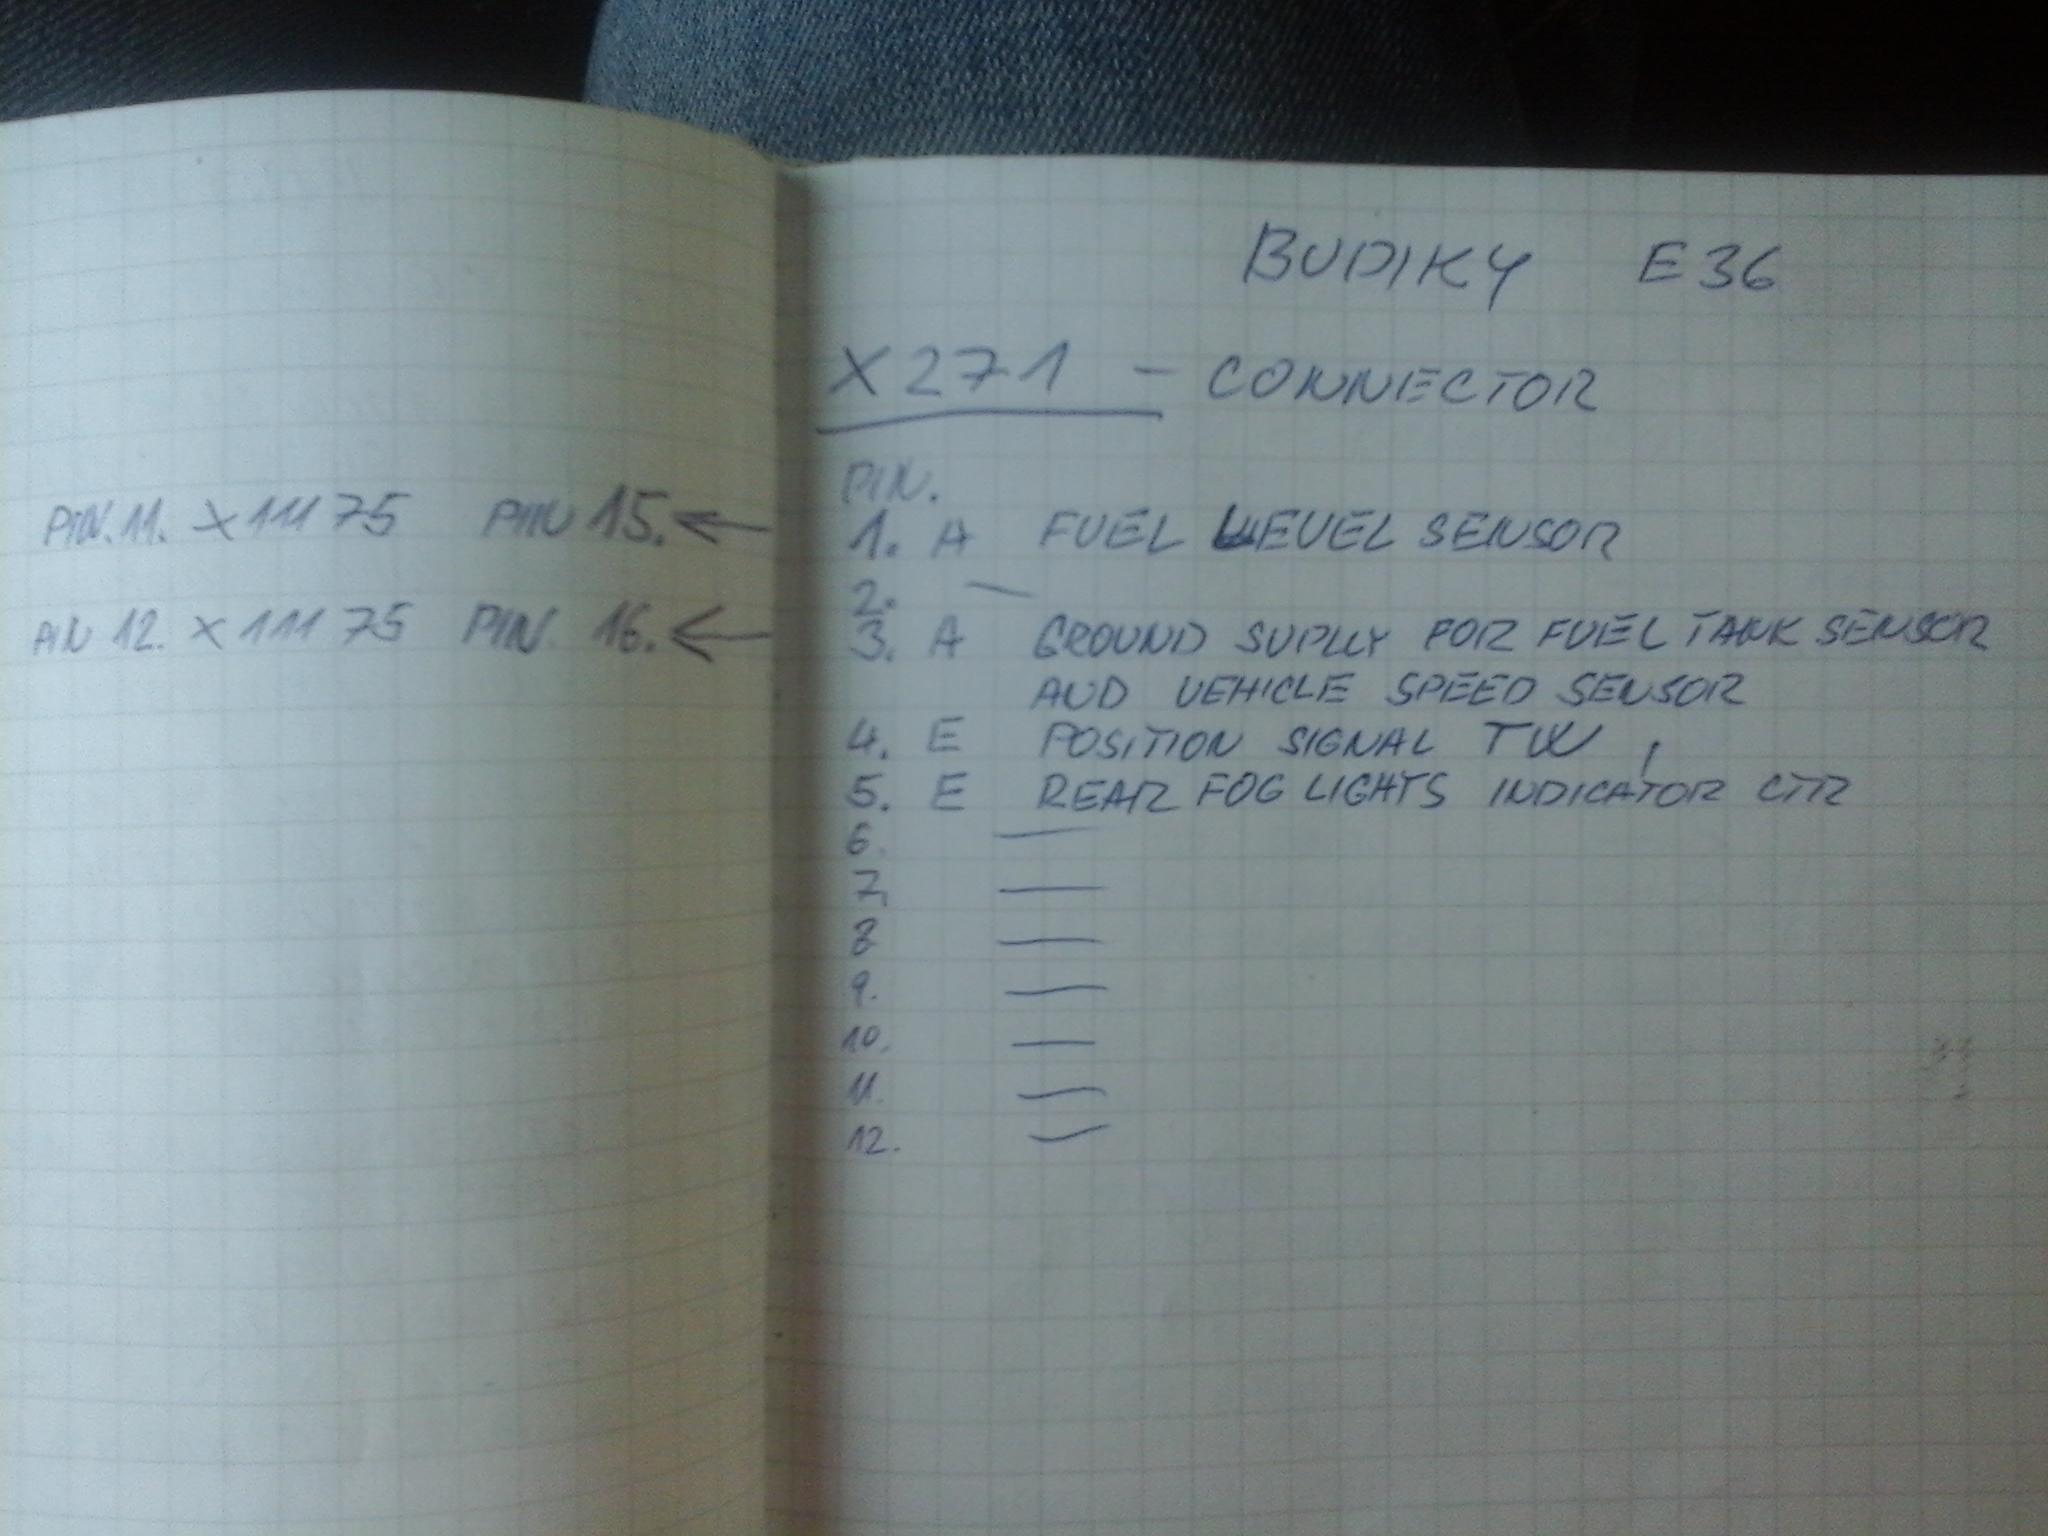 BUDIKY E36
X271 - CONNECTOR
PIN.
PIN.11. X11175 PIN 15. ←
1. A FUEL LEVEL SENSOR
2. —
PIN 12. X11175 PIN. 16. ←
3. A GROUND SUPLLY FOR FUEL TANK SENSOR
AND VEHICLE SPEED SENSOR
4. E POSITION SIGNAL TW,
5. E REAR FOG LIGHTS INDICATOR CTR
6. —
7. —
8 —
9. —
10. —
11. —
12. —